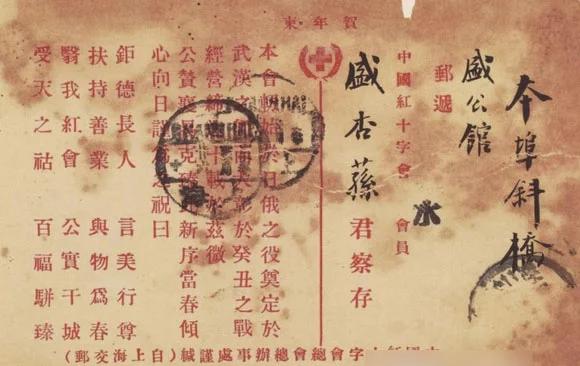 賀年柬
本埠斜橋
盛公館
郵遞
中國紅十字會 會員
盛杏蓀 君察存
本會軔始於日俄之役奠定於
武漢之間而大彰於癸丑之戰
經營締造十載於茲微
公贊襄曷克臻此新序當春傾
心向日謹為之祝曰
鉅德長人 言美行尊
扶持善業 與物為春
翳我紅會 公實干城
受天之祜 百福駢臻
字會總會總辦事處謹緘(自上海交郵)